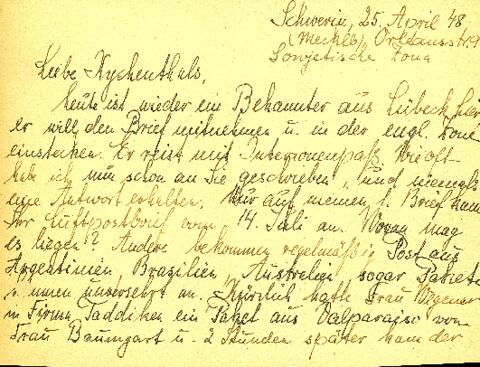 Schwerin, 25. April 48
(Meckl), Orléansstr. 9
Sowjetische Zone
Liebe Kychenthals,
heute ist wieder ein Bekannter aus Lübeck hier
er will den Brief mitnehmen u. in der engl. Zone
einstecken. Er reist mit Interzonenpaß. Wie oft
habe ich nun schon an Sie geschrieben, und niemals
eine Antwort erhalten. Nur auf meinen 1. Brief kam
Ihr Luftpostbrief vom 14. Juli an. Woran mag
es liegen? Andere bekommen regelmäßig Post aus
Argentinien, Brasilien, Australien, sogar Pakete
kommen unversehrt an. Kürlich hatte Frau
in Firma Taddiken ein Paket aus Valparaiso von
Frau Baumgart u. 2 Stunden später kam der